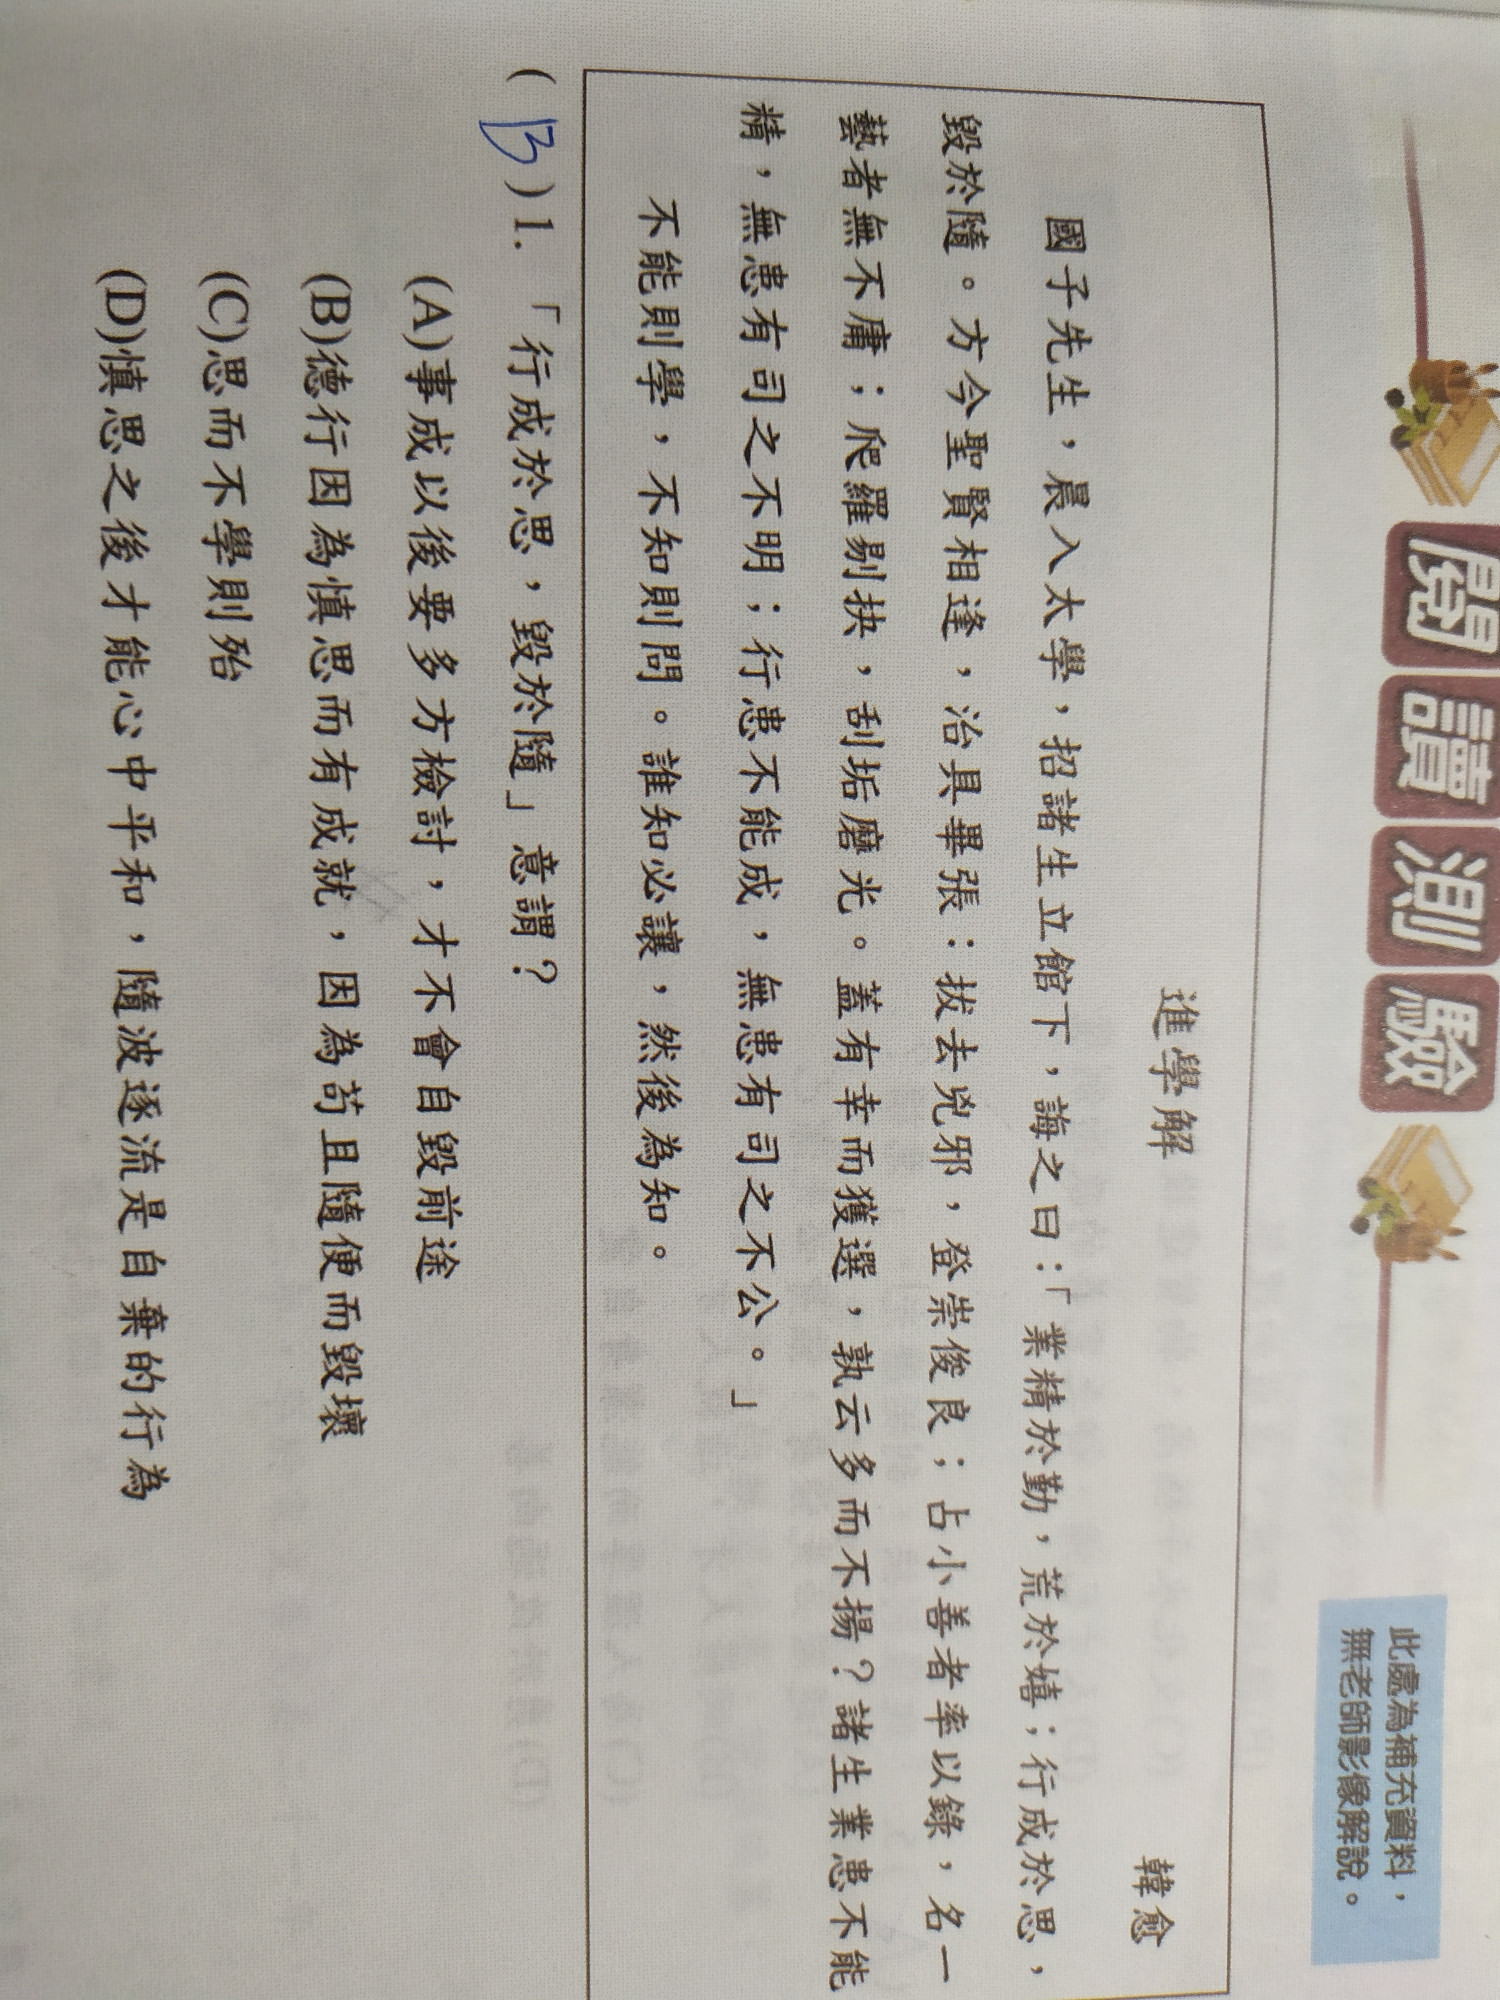 閱讀測驗
此處為補充資料，
無老師影像解說。
進學解
韓愈
國子先生，晨入太學，招諸生立館下，誨之曰：「業精於勤，荒於嬉；行成於思，
毀於隨。方今聖賢相逢，治具畢張：拔去兇邪，登崇俊良；占小善者率以錄，名一
藝者無不庸；爬羅剔抉，刮垢磨光。蓋有幸而獲選，孰云多而不揚？諸生業患不能
精，無患有司之不明；行患不能成，無患有司之不公。」
不能則學，不知則問。誰知必讓，然後為知。
(B)1.「行成於思，毀於隨」意謂？
(A)事成以後要多方檢討，才不會自毀前途
(B)德行因為慎思而有成就，因為苟且隨便而毀壞
(C)思而不學則殆
(D)慎思之後才能心中平和，隨波逐流是自棄的行為